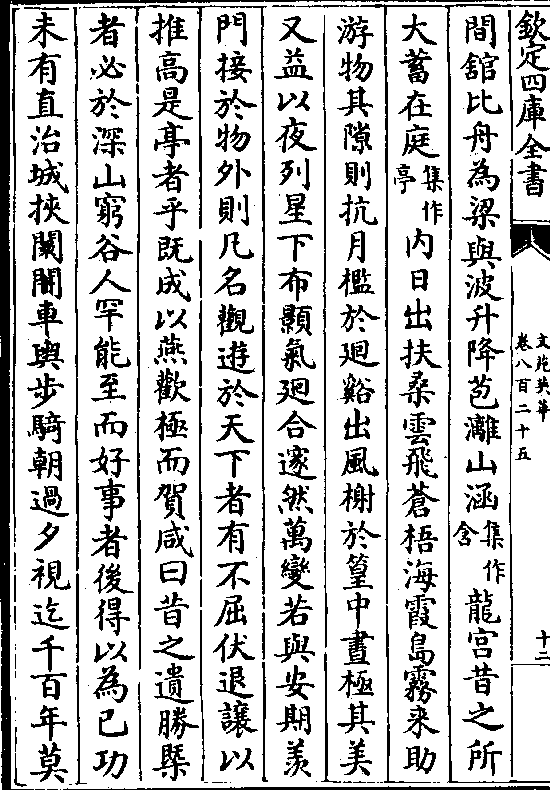 欽定四庫全書
文苑英華
卷八百二十五
十二
間舘比舟為梁與波升降苞灕山涵集作含龍宫昔之所
大蓄在庭集作亭内日出扶桑雲飛蒼梧海霞島霧来助
游物其隙則抗月檻於廻谿出風榭於篁中晝極其美
又益以夜列星下布顥氣廻合邃然萬變若與安期羨
門接於物外則凡名觀遊於天下者有不屈伏退讓以
推高是亭者乎既成以燕歡極而賀咸曰昔之遺勝槩
者必於深山窮谷人罕能至而好事者後得以為已功
未有直治城挾闤闠車輿步騎朝過夕視迄千百年莫